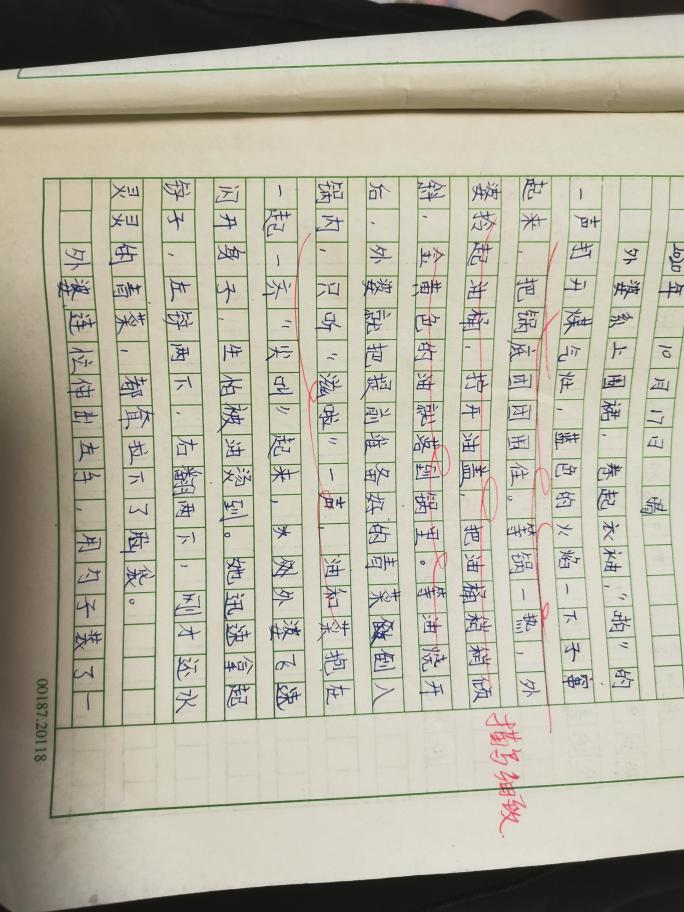 2020年 10月17日 晴
外婆系上围裙，卷起衣袖，“啪”的
一声打开煤气灶，蓝色的火焰一下子窜
起来，把锅底团团围住。等锅一热，外
婆拎起油桶，拧开油盖，把油桶稍稍倾
斜，金黄色的油就落到锅里。等油烧开
后，外婆就把提前准备好的青菜倒入
锅内，只听“滋啦”一声，油和菜抱在
一起一齐“尖叫”起来，外婆飞速
闪开身子，生怕被油烫到。她迅速拿起
铲子，左铲两下，右翻两下，刚才还水
灵灵的青菜，都耷拉下了脑袋。
外婆连忙伸出左手，用勺子装了一
描写细致
00187.20118